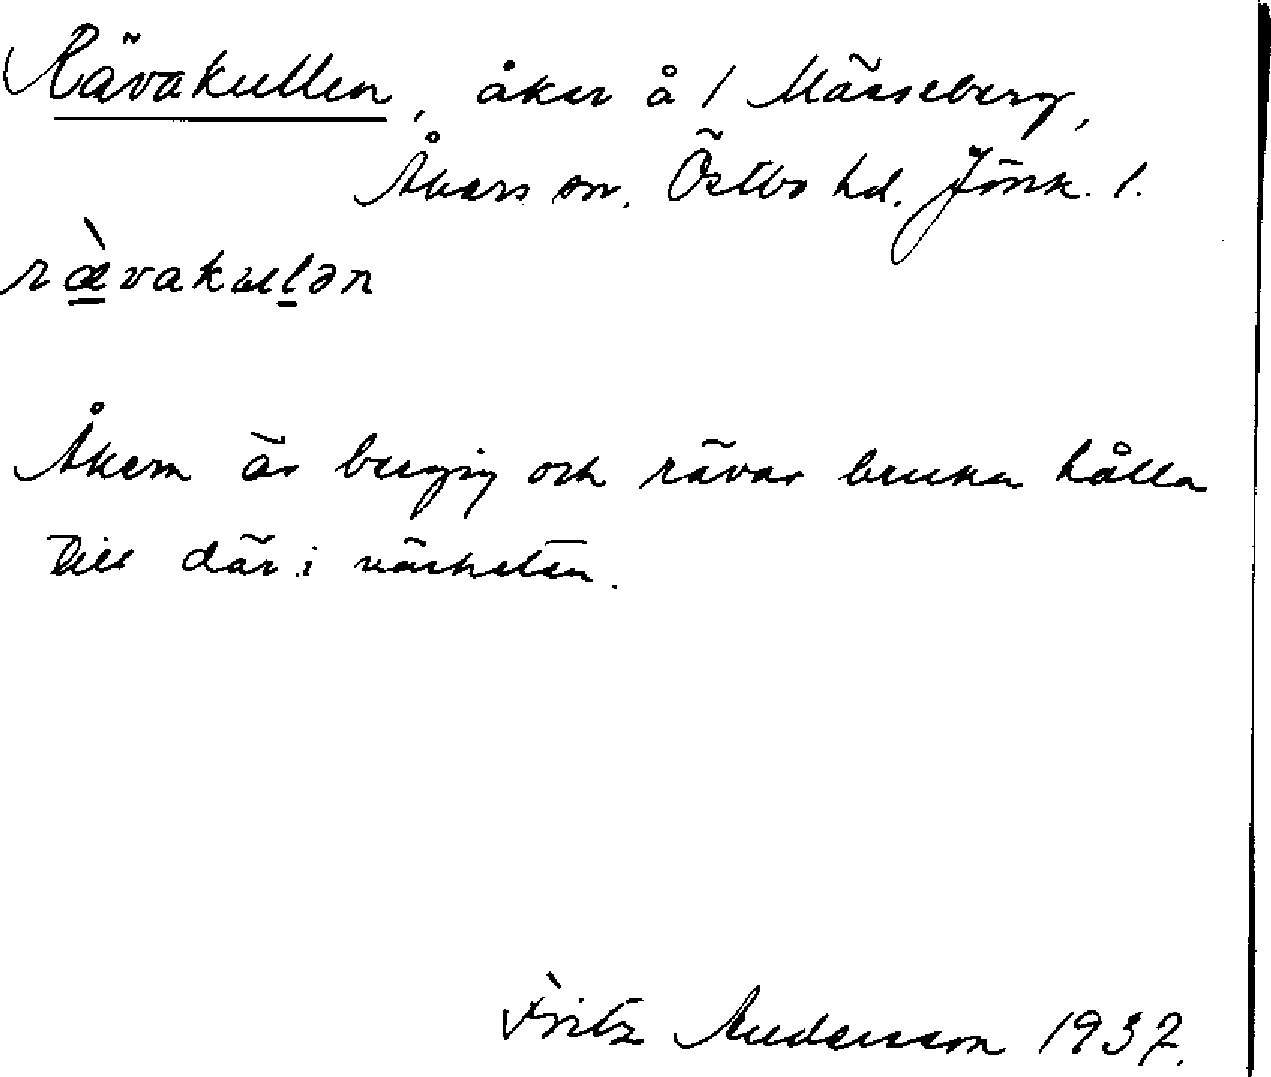 Rävakullen, åker å 1 Mässeberg,
Åkers sn. Östbo hd. Jönk. l.
ræ̀vakulən
Åkern är bergig och rävar bruka hålla
till där i närheten.
Fritz Andersson 1937.